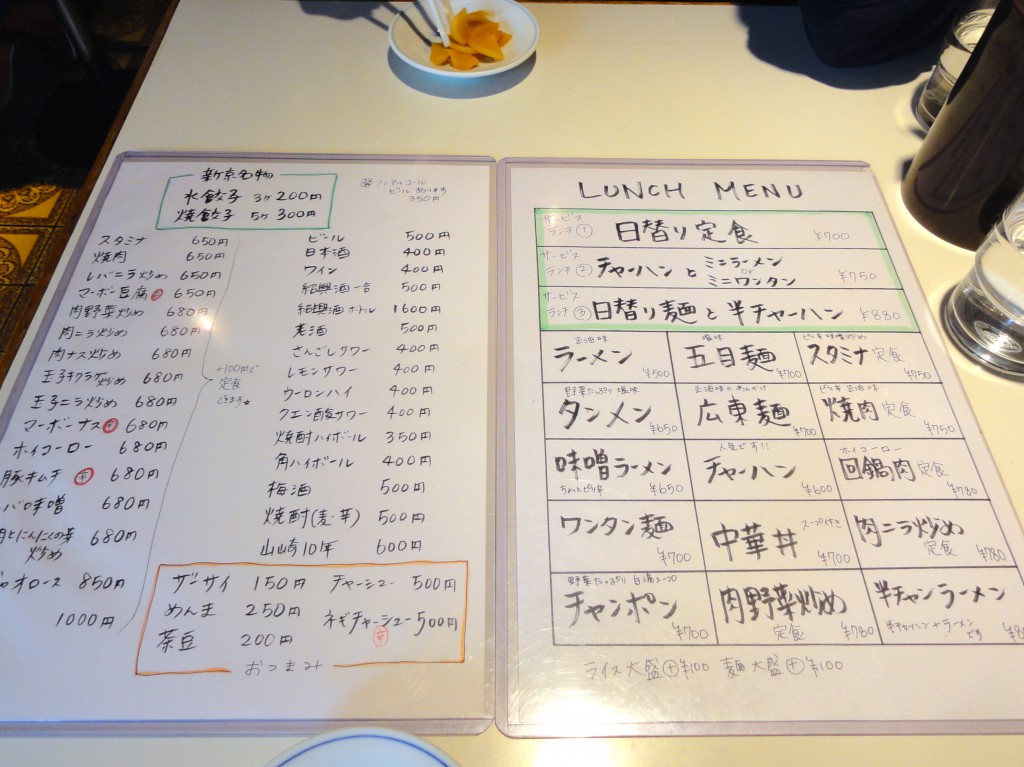 新京名物
水餃子 3ケ 200円
焼餃子 5ケ 300円
ノンアルコール
ビールあります
350円
スタミナ 650円
焼肉 650円
レバニラ炒め 650円
マーボー豆腐 辛 650円
肉野菜炒め 680円
肉ニラ炒め 680円
肉ナス炒め 680円
玉子キクラゲ炒め 680円
玉子ニラ炒め 680円
マーボーナス 辛 680円
ホイコーロー 680円
豚キムチ 辛 680円
バ味噌 680円
とにんにくの芽
炒め 680円
オロース 850円
1000円
+100円で
定食
できます
ビール 500円
日本酒 400円
ワイン 400円
紹興酒一合 500円
紹興酒ボトル 1600円
老酒 500円
さんごしサワー 400円
レモンサワー 400円
ウーロンハイ 400円
クエン酸サワー 400円
焼酎ハイボール 350円
角ハイボール 400円
梅酒 500円
焼酎(麦・芋) 500円
山崎10年 600円
ザーサイ 150円 チャーシュー 500円
めんま 250円 ネギチャーシュー 500円
辛
茶豆 200円
おつまみ
LUNCH MENU
サービスランチ① 日替り定食 ¥700
サービスランチ② チャーハンと ミニラーメン or ミニワンタン ¥750
サービスランチ③ 日替り麺と半チャーハン ¥880
正油味 ラーメン ¥500
塩味 五目麺 ¥700
ピリ辛味噌炒め スタミナ定食 ¥750
野菜たっぷり塩味 タンメン ¥650
正油味のあんかけ 広東麺 ¥700
ピリ辛正油味 焼肉定食 ¥750
味噌ラーメン ちょっとピリ辛 ¥650
人気です!! チャーハン ¥600
ホイコーロー 回鍋肉定食 ¥780
ワンタン麺 ¥700
中華丼 スープ付き ¥700
肉ニラ炒め定食 ¥780
野菜たっぷり白湯スープ チャンポン ¥700
肉野菜炒め定食 ¥780
半チャンラーメン
半チャーハン+ラーメンです
ライス大盛⊕¥100 麺大盛⊕¥100